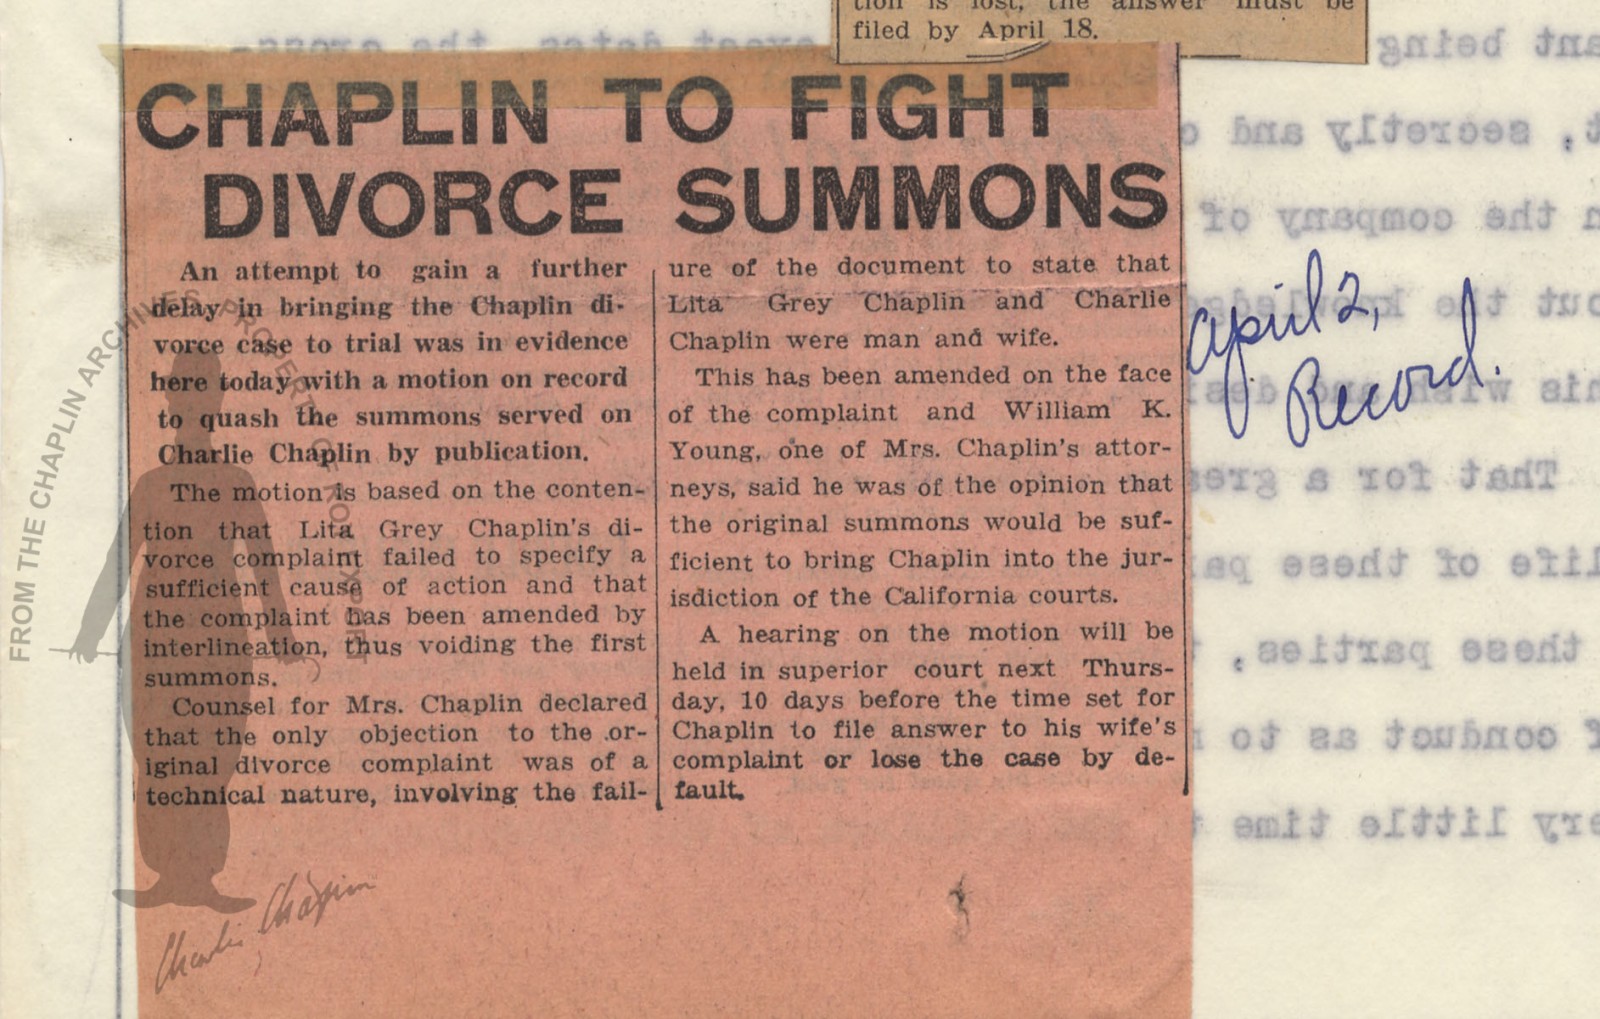 tion is lost, the answer must be
filed by April 18.
CHAPLIN TO FIGHT
DIVORCE SUMMONS
An attempt to gain a further
delay in bringing the Chaplin di-
vorce case to trial was in evidence
here today with a motion on record
to quash the summons served on
Charlie Chaplin by publication.
The motion is based on the conten-
tion that Lita Grey Chaplin's di-
vorce complaint failed to specify a
sufficient cause of action and that
the complaint has been amended by
interlineation, thus voiding the first
summons.
Counsel for Mrs. Chaplin declared
that the only objection to the .or-
iginal divorce complaint was of a
technical nature, involving the fail-
ure of the document to state that
Lita Grey Chaplin and Charlie
Chaplin were man and wife.
This has been amended on the face
of the complaint and William K.
Young, one of Mrs. Chaplin's attor-
neys, said he was of the opinion that
the original summons would be suf-
ficient to bring Chaplin into the jur-
isdiction of the California courts.
A hearing on the motion will be
held in superior court next Thurs-
day, 10 days before the time set for
Chaplin to file answer to his wife's
complaint or lose the case by de-
fault.
April 2,
Record.
ant being
event dates, the cross-
, secretly and
the company of
out the knowledge
his wish and desi
That for a grea
life of these pa
these parties,
f conduct as to
ery little time
FROM THE CHAPLIN ARCHIVES
PROPERTY OF ROY EXPORT
Charlie Chaplin